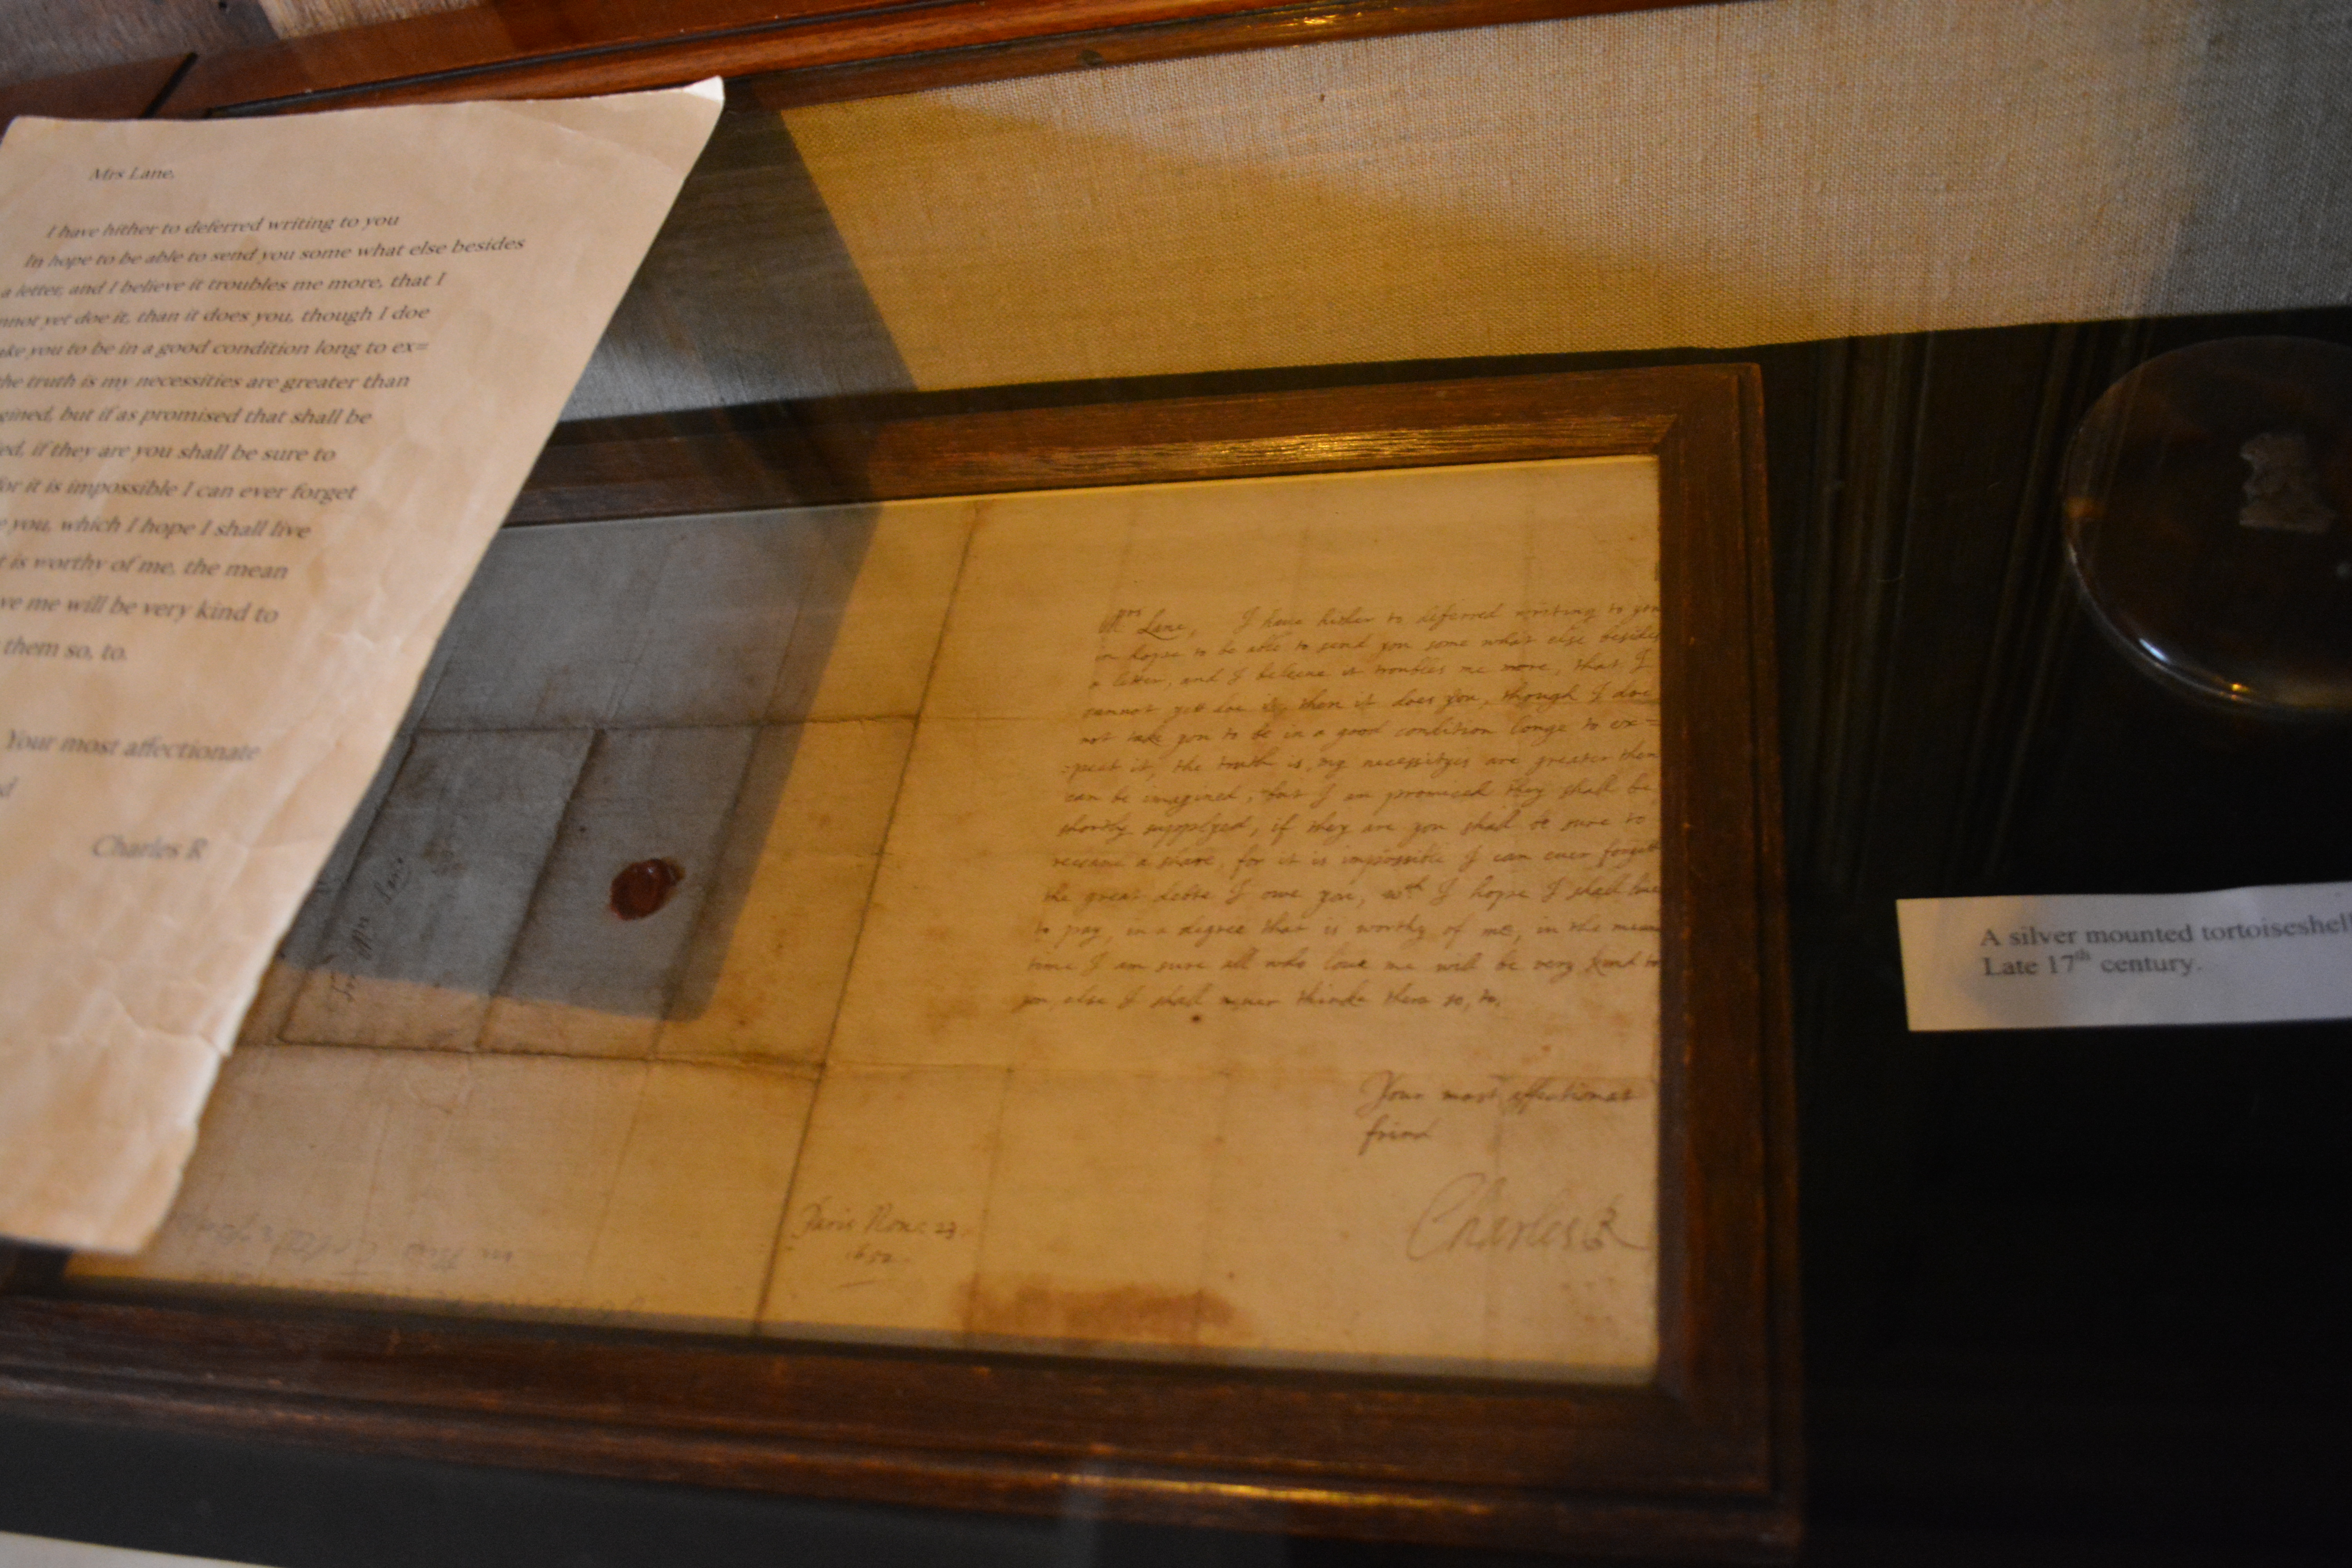 Mrs Lane,
I have hither to deferred writing to you
In hope to be able to send you some what else besides
a letter, and I believe it troubles me more, that I
nnot yet doe it, than it does you, though I doe
ake you to be in a good condition long to ex=
the truth is my necessities are greater than
gined, but if as promised that shall be
ed, if they are you shall be sure to
for it is impossible I can ever forget
e you, which I hope I shall live
t is worthy of me, the mean
ve me will be very kind to
them so, to.
Your most affectionate
d
Charles R
Mrs Lane, I have hither to deferred writing to you
in hope to be able to send you some what else besides
a letter, and I beleeue it troubles me more, that I
cannot yett doe it, then it does you, though I doe
not take you to be in a good condition longe to ex=
:pect it, the truth is, my necessityes are greater then
can be imagined, but I am promised they shall be
shortly supplyed, if they are you shall be sure to
receaue a share, for it is impossible I can euer forgett
the great debte I owe you, wch I hope I shall liue
to pay, in a degree that is worthy of me, in the meane
time I am sure all who loue me will be very kind to
you, else I shall neuer thinke them so, to.
Your most affectionat
frind
Charles R
Paris Nou: 23
1652
For Mrs Lane
A silver mounted tortoiseshell
Late 17th century.